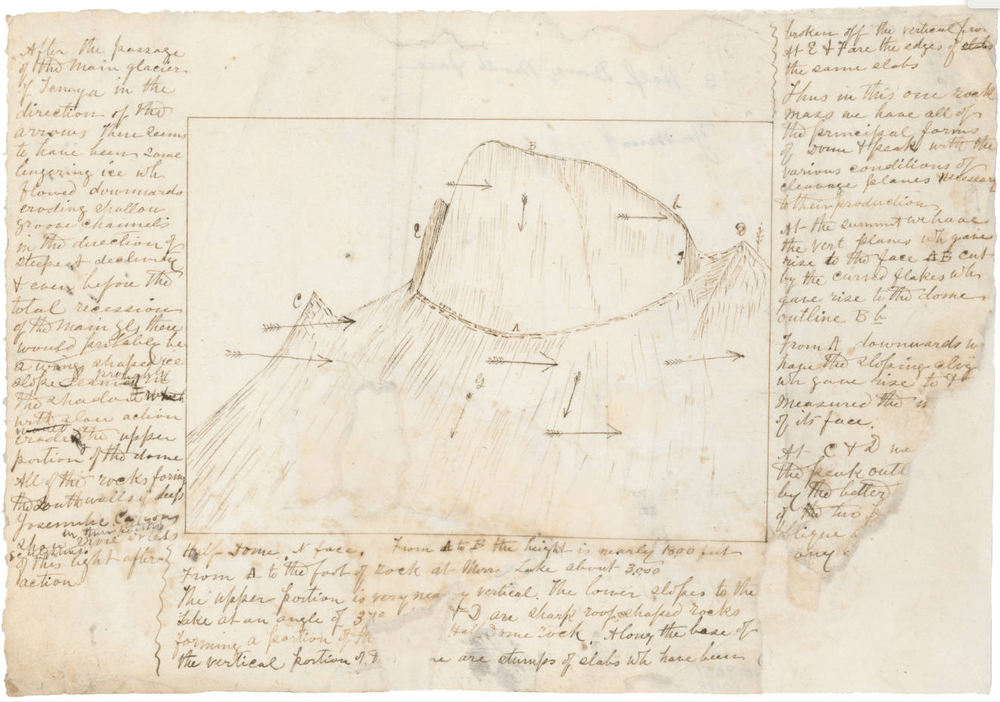 After the passage
of the main glacier
of Tenaya in the
direction of the
arrows there seems
to have been some
lingering ice wh
flowed downwards
eroding shallow
groove channels
in the direction of
steepest declivity
& even before the
total recession
of the main gl there
would probably be
a wing shaped ice
slope
the shadow
with slow action
the upper
portion of the dome
All of the rocks forming
the South walls of deep
Yosemite Canyons
in
show
of this light after
action
Half-Dome, N face. From A to B the height is nearly 1800 feet
From A to the foot of rock at Mirror Lake about 3,000
The upper portion is very nea y vertical. The lower slopes to the
Lake at an angle of 370 & D are sharp roof shaped rocks
forming a portion of th Half Dome rock. Along the base of
the vertical portion re are stumps of slabs wh have been
broken off the vertical
At E & F are the edges of
the same slabs
Thus in this one rock
mass we have all of
the principal forms
of Dome & peak with the
various conditions of
cleavage planes necessary
to their production
At the summit we have
the vert planes wh gave
rise to the face AB cut
by the curved flakes wh
gave rise to the dome
outline B b
From A downwards w
have the sloping
wh gave rise to &
measured the
of its face.
At C & D we
the peak outl
by the better
of the two
any
B
b
D
C
A
G